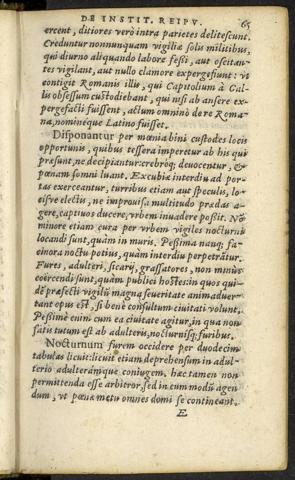 DE INSTIT. REIPV. 65
ercent, ditiores verò intra parietes delitescunt.
Creduntur nonnunquam vigiliæ solis militibus,
qui diurno aliquando labore fessi, aut oscitan-
tes vigilant, aut nullo clamore expergefiunt: vt
contigit Romanis illis, qui Capitolium à Gal-
lis obsessum custodiebant, qui nisi ab ansere ex-
pergefacti fuissent, actum omninò de re Roma-
na, nomineque Latino fuisset.
Disponantur per mœnia bini custodes locis
opportunis, quibus tessera imperetur ab his qui
præsunt, ne decipiantur: crebròq; deuocentur, &
pœnam somni luant. Excubiæ interdiu ad por-
tas exerceantur, turribus etiam aut speculis, lo-
cisve electis, ne improuisa multitudo prædas a-
gere, captiuos ducere, vrbem inuadere possit. Nō
minore etiam cura per vrbem vigiles nocturni
locandi sunt, quàm in muris. Pessima nanq; fa-
cinora noctu potius, quàm interdiu perpetrātur.
Fures, adulteri, sicarij, grassatores, non minùs
coërcendi sunt, quàm publici hostes: in quos qui-
dē præfecti vigilū magna seueritate animaduer-
tant opus est, si benè consultum ciuitati volunt.
Pessimè enim cum ea ciuitate agitur, in qua non
satis tutum est ab adulteris, nocturnisq; furibus.
Nocturnum furem occidere per duodecim
tabulas licuit: licuit etiam deprehensum in adul-
terio adulterámque coniugem. hæc tamen non
permittenda esse arbitror, sed in eum modū agen
dum, vt pœnæ metu omnes domi se contineant.
E